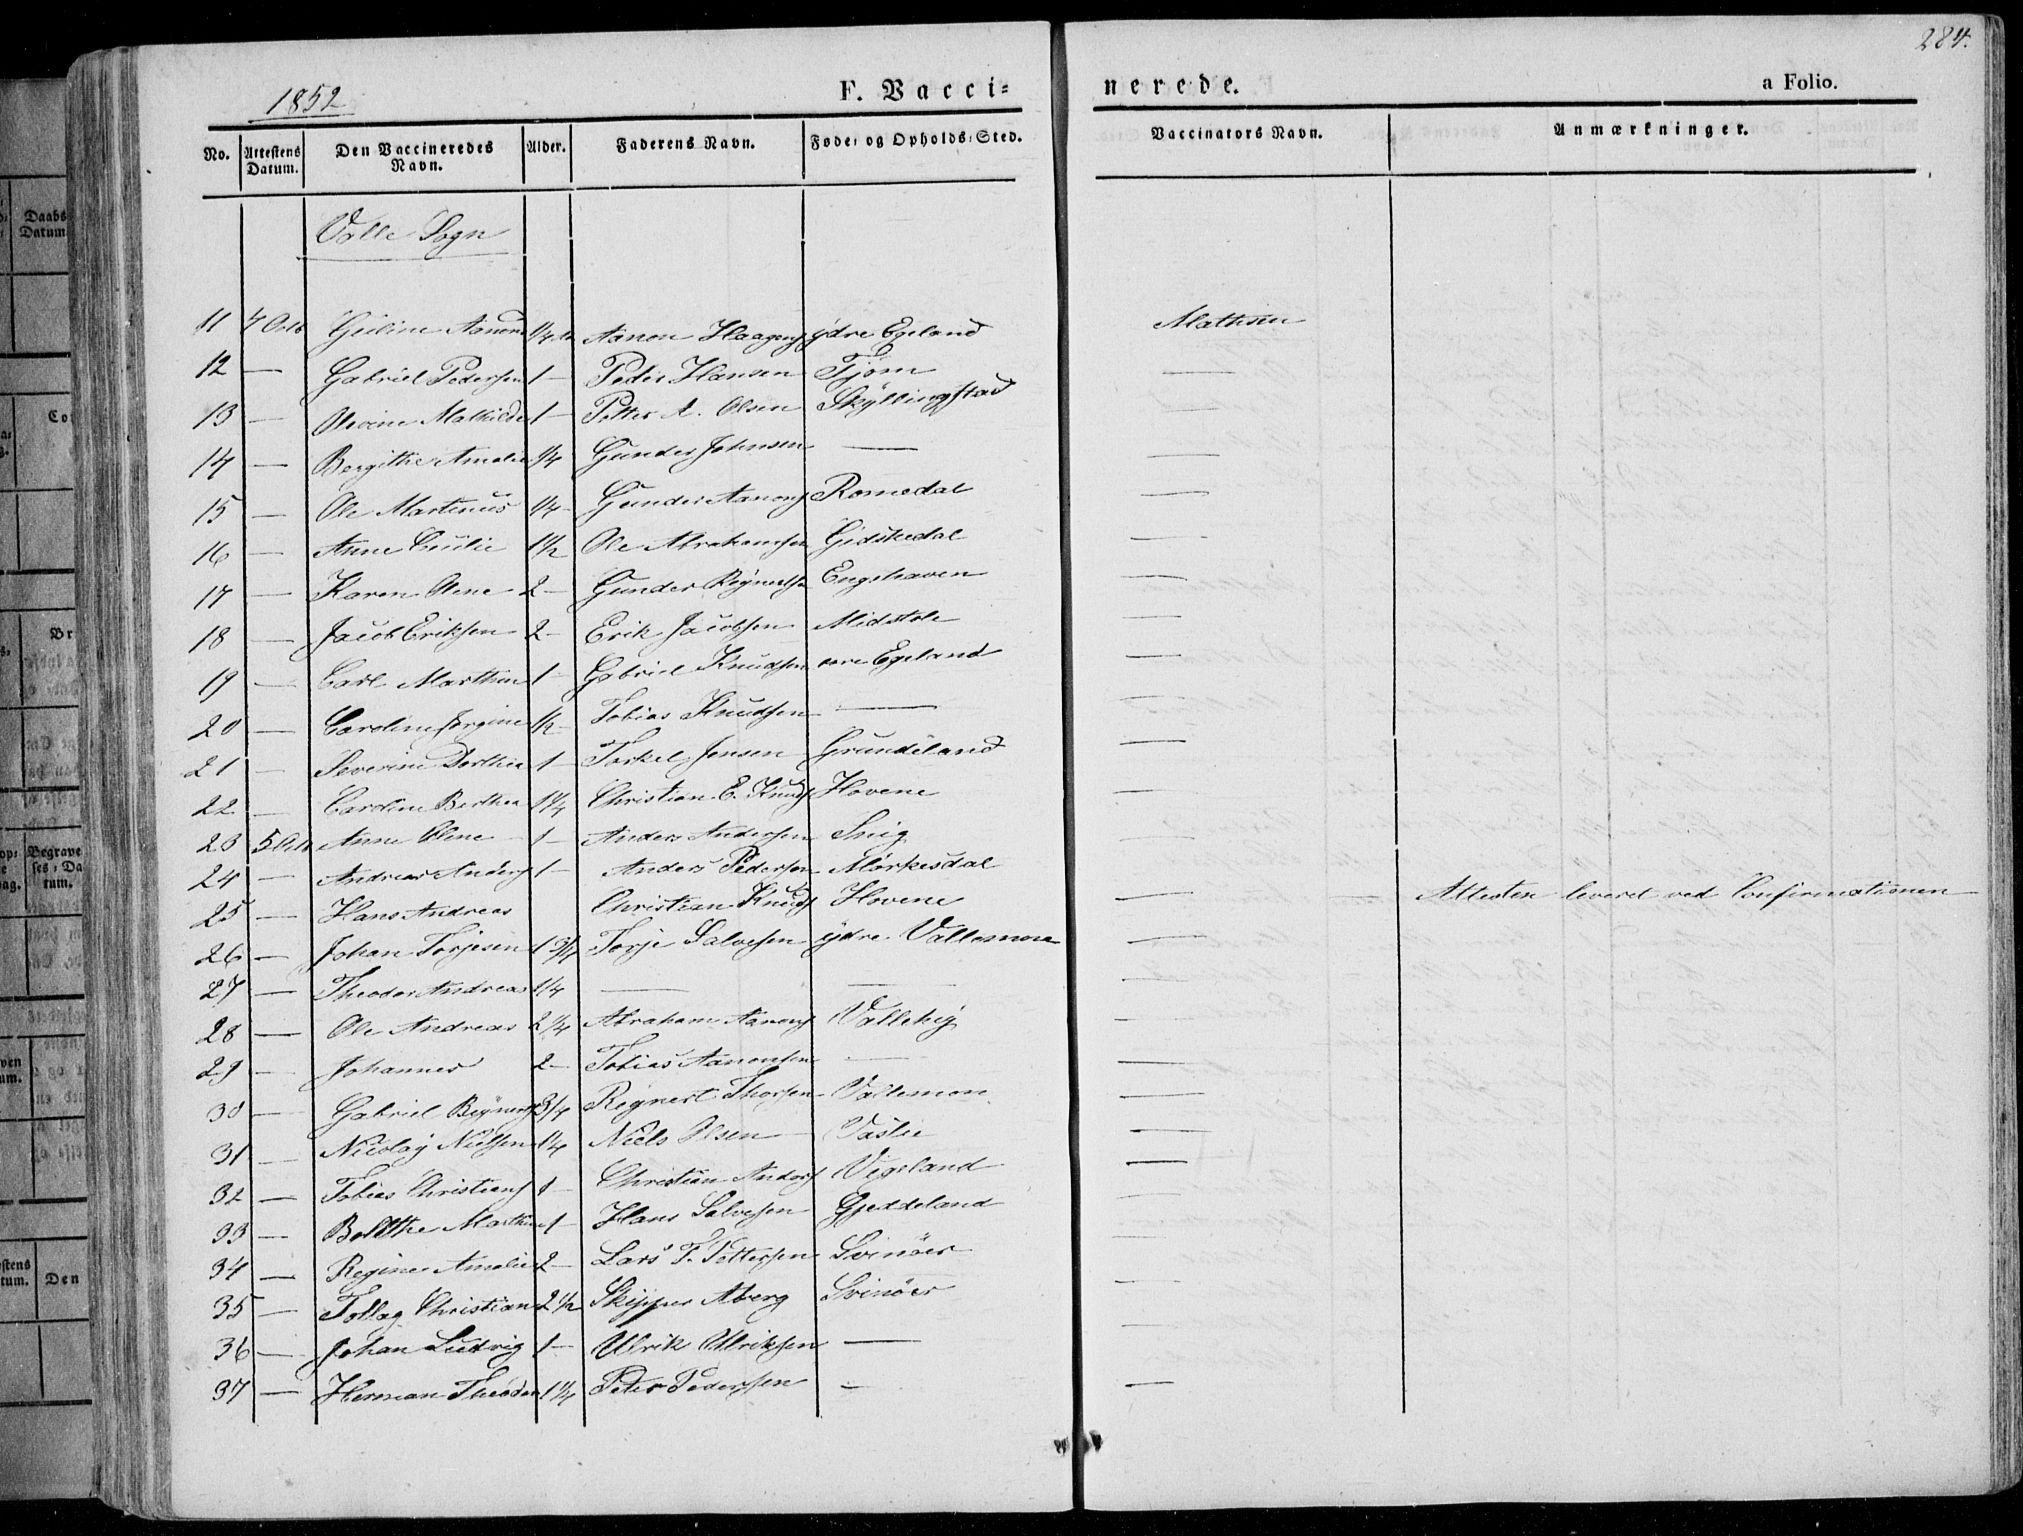 284.
1852
F. Vacci=
nerede.
a Folio.
No. Attestens Datum. Den Vaccineredes Navn. Alder. Faderens Navn. Føde- og Opholds-Sted. Vaccinators Navn. Anmærkninger.
Valle Sogn
11 Aanon Haagens ydre Egeland Mathsen
12 — Gabriel Pedersen 1 — Peder Hansen Tjom —
13 — Olevine Mathilde 1 — Petter A. Olsen Skyllingstad —
14 — Bergithe Amalie 1/4 Gunder Johnsen — —
15 — Ole Martinus 1/4 — Gunder Aanons Romedal —
16 — Anne 1 1/2 Ole Abrahamsen Gidskedal —
17 — Karen Olene 2 — Gunder Regnertsen Engehaven —
18 — Jacob Eriksen 2 — Erik Jacobsen Midstøle —
19 — Carl Marthin 1 — Gabriel Knudsen øvre Egeland —
20 — Caroline Jørgine 1/2 — Tobias Knudsen — —
21 — Severine Dorthea 1 — Torkel Jensen Grundeland —
22 — Caroline Berthea 1 1/4 Christian E. Knuds Hovene —
23 5 Octb Anne Olene 1 — Anders Andersen Snig —
24 — Andreas Anders 1 — Anders Pedersen Mørkesdal
25 — Hans Andreas Christian Knuds Hovene — — Attesten leveret ved Confirmationen
26 — Johan Torjesen 1 3/4 Torje Salvesen ydre Vallemoen —
27 — Theodor Andreas 1/4 — — —
28 — Ole Andreas 2 1/4 Abraham Aanons Vallehej —
29 — Johannes 2 — Tobias Aanonsen — —
30 — Gabriel Regnerts 3/4 Regnert Thorsen Vallemoen —
31 — Nicolay Nielsen 1/4 Niels Olsen Vaslie —
32 — Tobias Christians 1 — Christian Anders Vigeland —
33 — Marthine 1 — Hans Salvesen Gjeddeland —
34 — Regine Amalie 2 — Lars T. Pettersen Svinøer —
35 — Tollag Christian 2 1/2 Skipper Aberg Svinøer —
36 — Johan Ludvig 1 — Ulrik Ulriksen — —
37 — Herman Theodor 1 1/4 Peter Pedersen — —